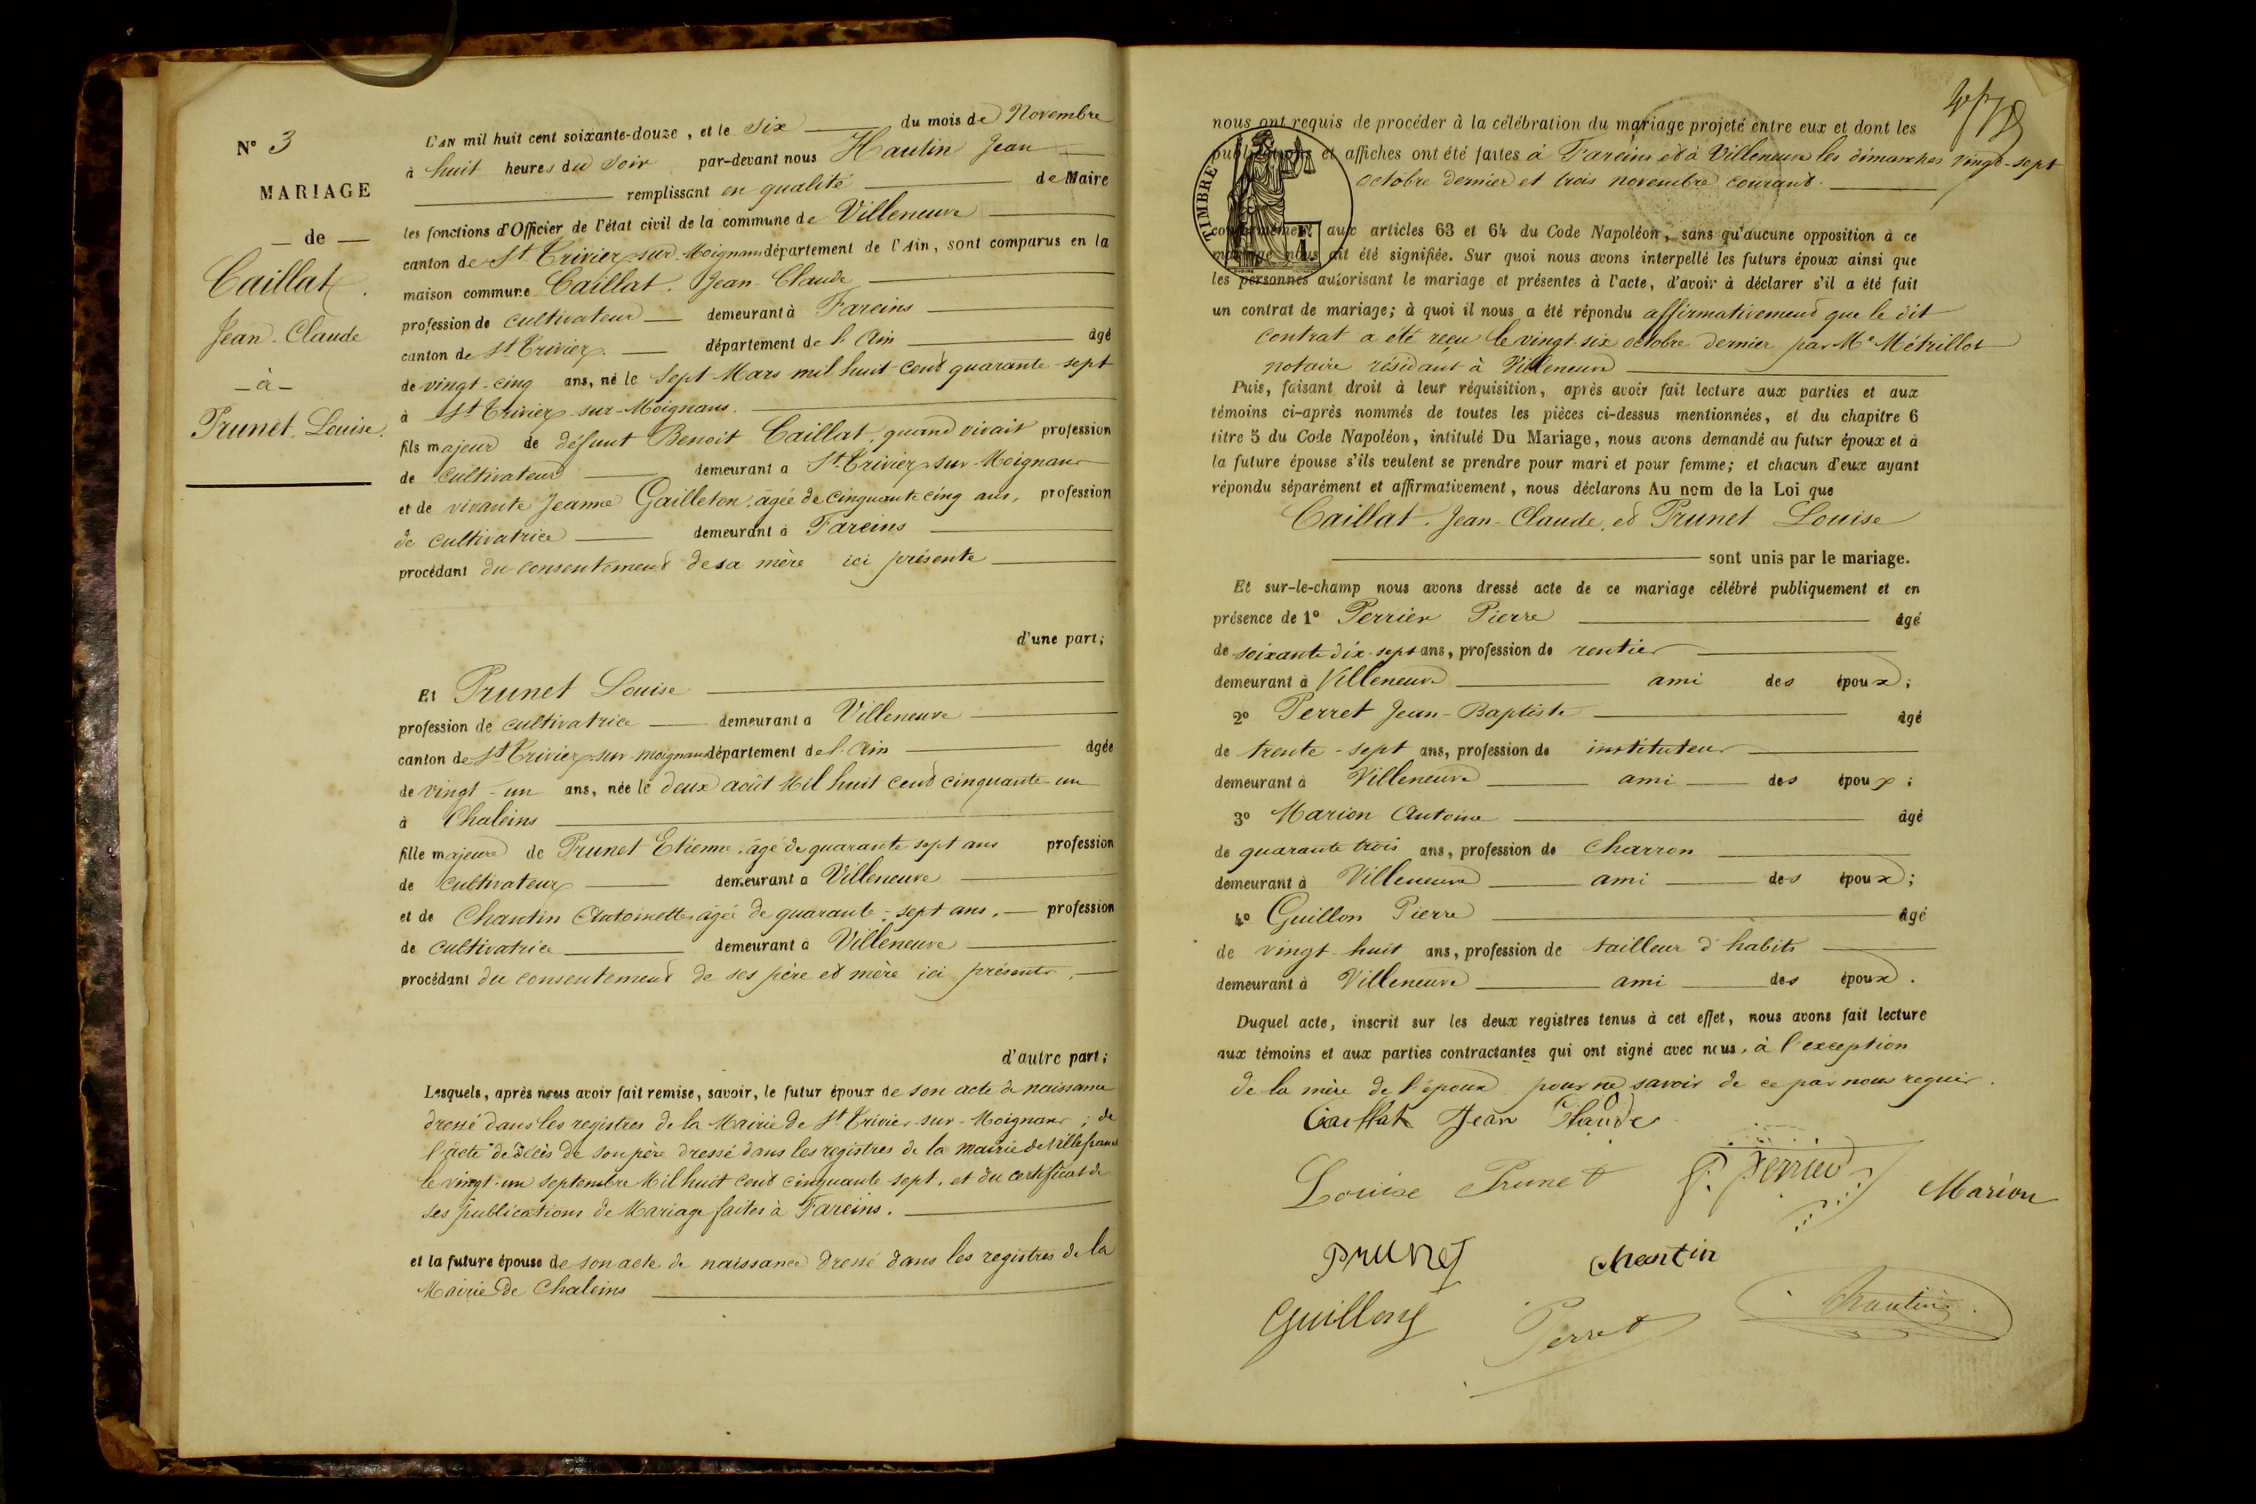 N° 3
MARIAGE
— de —
Caillat
Jean-Claude
— à —
Prunet Louise.
L'AN mil huit cent soixante-douze, et le six du mois de Novembre
à huit heures du soir par-devant nous Hautin Jean
remplissant en qualité de Maire
les fonctions d'Officier de l'état civil de la commune de Villeneuve
canton de St Trivier-sur-Moignans département de l'Ain, sont comparus en la
maison commune Caillat Jean-Claude
profession de cultivateur demeurant à Fareins
canton de St Trivier département de l'Ain âgé
de vingt-cinq ans, né le sept Mars mil huit cent quarante-sept
à St Trivier-sur-Moignans.
fils majeur de défunt Benoit Caillat, quand vivait profession
de cultivateur demeurant à St Trivier-sur-Moignans
et de vivante Jeanne Gailleton, âgée de cinquante cinq ans, profession
de cultivatrice demeurant à Fareins
procédant du consentement de sa mère ici présente
d'une part;
Et Prunet Louise
profession de cultivatrice demeurant à Villeneuve
canton de St Trivier-sur-Moignans département de l'Ain âgée
de vingt-un ans, née le deux août Mil huit cent cinquante-un
à Chaleins
fille majeure de Prunet Etienne, âgé de quarante sept ans profession
de cultivateur demeurant à Villeneuve
et de Chantin Antoinette âgée de quarante-sept ans, profession
de cultivatrice demeurant à Villeneuve
procédant du consentement de ses père et mère ici présents,
d'autre part;
Lesquels, après nous avoir fait remise, savoir, le futur époux de son acte de naissance
dressé dans les registres de la Mairie de St Trivier-sur-Moignans; de
l'acte de décès de son père dressé dans les registres de la mairie de Villefranche
le vingt-un septembre Mil huit cent cinquante sept, et du certificat de
ses publications de Mariage faites à Fareins.
et la future épouse de son acte de naissance dressé dans les registres de la
Mairie de Chaleins
nous ont requis de procéder à la célébration du mariage projeté entre eux et dont les
publications et affiches ont été faites à Fareins et à Villeneuve les dimanches vingt-sept
octobre dernier et trois novembre courant.
TIMBRE
conformément aux articles 63 et 64 du Code Napoléon, sans qu'aucune opposition à ce
mariage nous ait été signifiée. Sur quoi nous avons interpellé les futurs époux ainsi que
les personnes autorisant le mariage et présentes à l'acte, d'avoir à déclarer s'il a été fait
un contrat de mariage; à quoi il nous a été répondu affirmativement que le dit
contrat a été reçu le vingt six octobre dernier par Me Métrillot
notaire résidant à Villeneuve
Puis, faisant droit à leur réquisition, après avoir fait lecture aux parties et aux
témoins ci-après nommés de toutes les pièces ci-dessus mentionnées, et du chapitre 6
titre 5 du Code Napoléon, intitulé Du Mariage, nous avons demandé au futur époux et à
la future épouse s'ils veulent se prendre pour mari et pour femme; et chacun d'eux ayant
répondu séparément et affirmativement, nous déclarons Au nom de la Loi que
Caillat Jean-Claude et Prunet Louise
sont unis par le mariage.
Et sur-le-champ nous avons dressé acte de ce mariage célébré publiquement et en
présence de 1° Perrier Pierre âgé
de soixante dix-sept ans, profession de rentier
demeurant à Villeneuve ami des époux;
2° Perret Jean-Baptiste âgé
de trente-sept ans, profession de instituteur
demeurant à Villeneuve ami des époux;
3° Marion Antoine âgé
de quarante trois ans, profession de Charron
demeurant à Villeneuve ami des époux;
4° Guillon Pierre âgé
de vingt-huit ans, profession de tailleur d'habits
demeurant à Villeneuve ami des époux.
Duquel acte, inscrit sur les deux registres tenus à cet effet, nous avons fait lecture
aux témoins et aux parties contractantes qui ont signé avec nous, à l'exception
de la mère de l'époux pour ne savoir de ce par nous requis.
Caillat Jean Claude
Louise Prunet P. Perrier Marion
Prunet Chantin
Guillon Perret Hautin